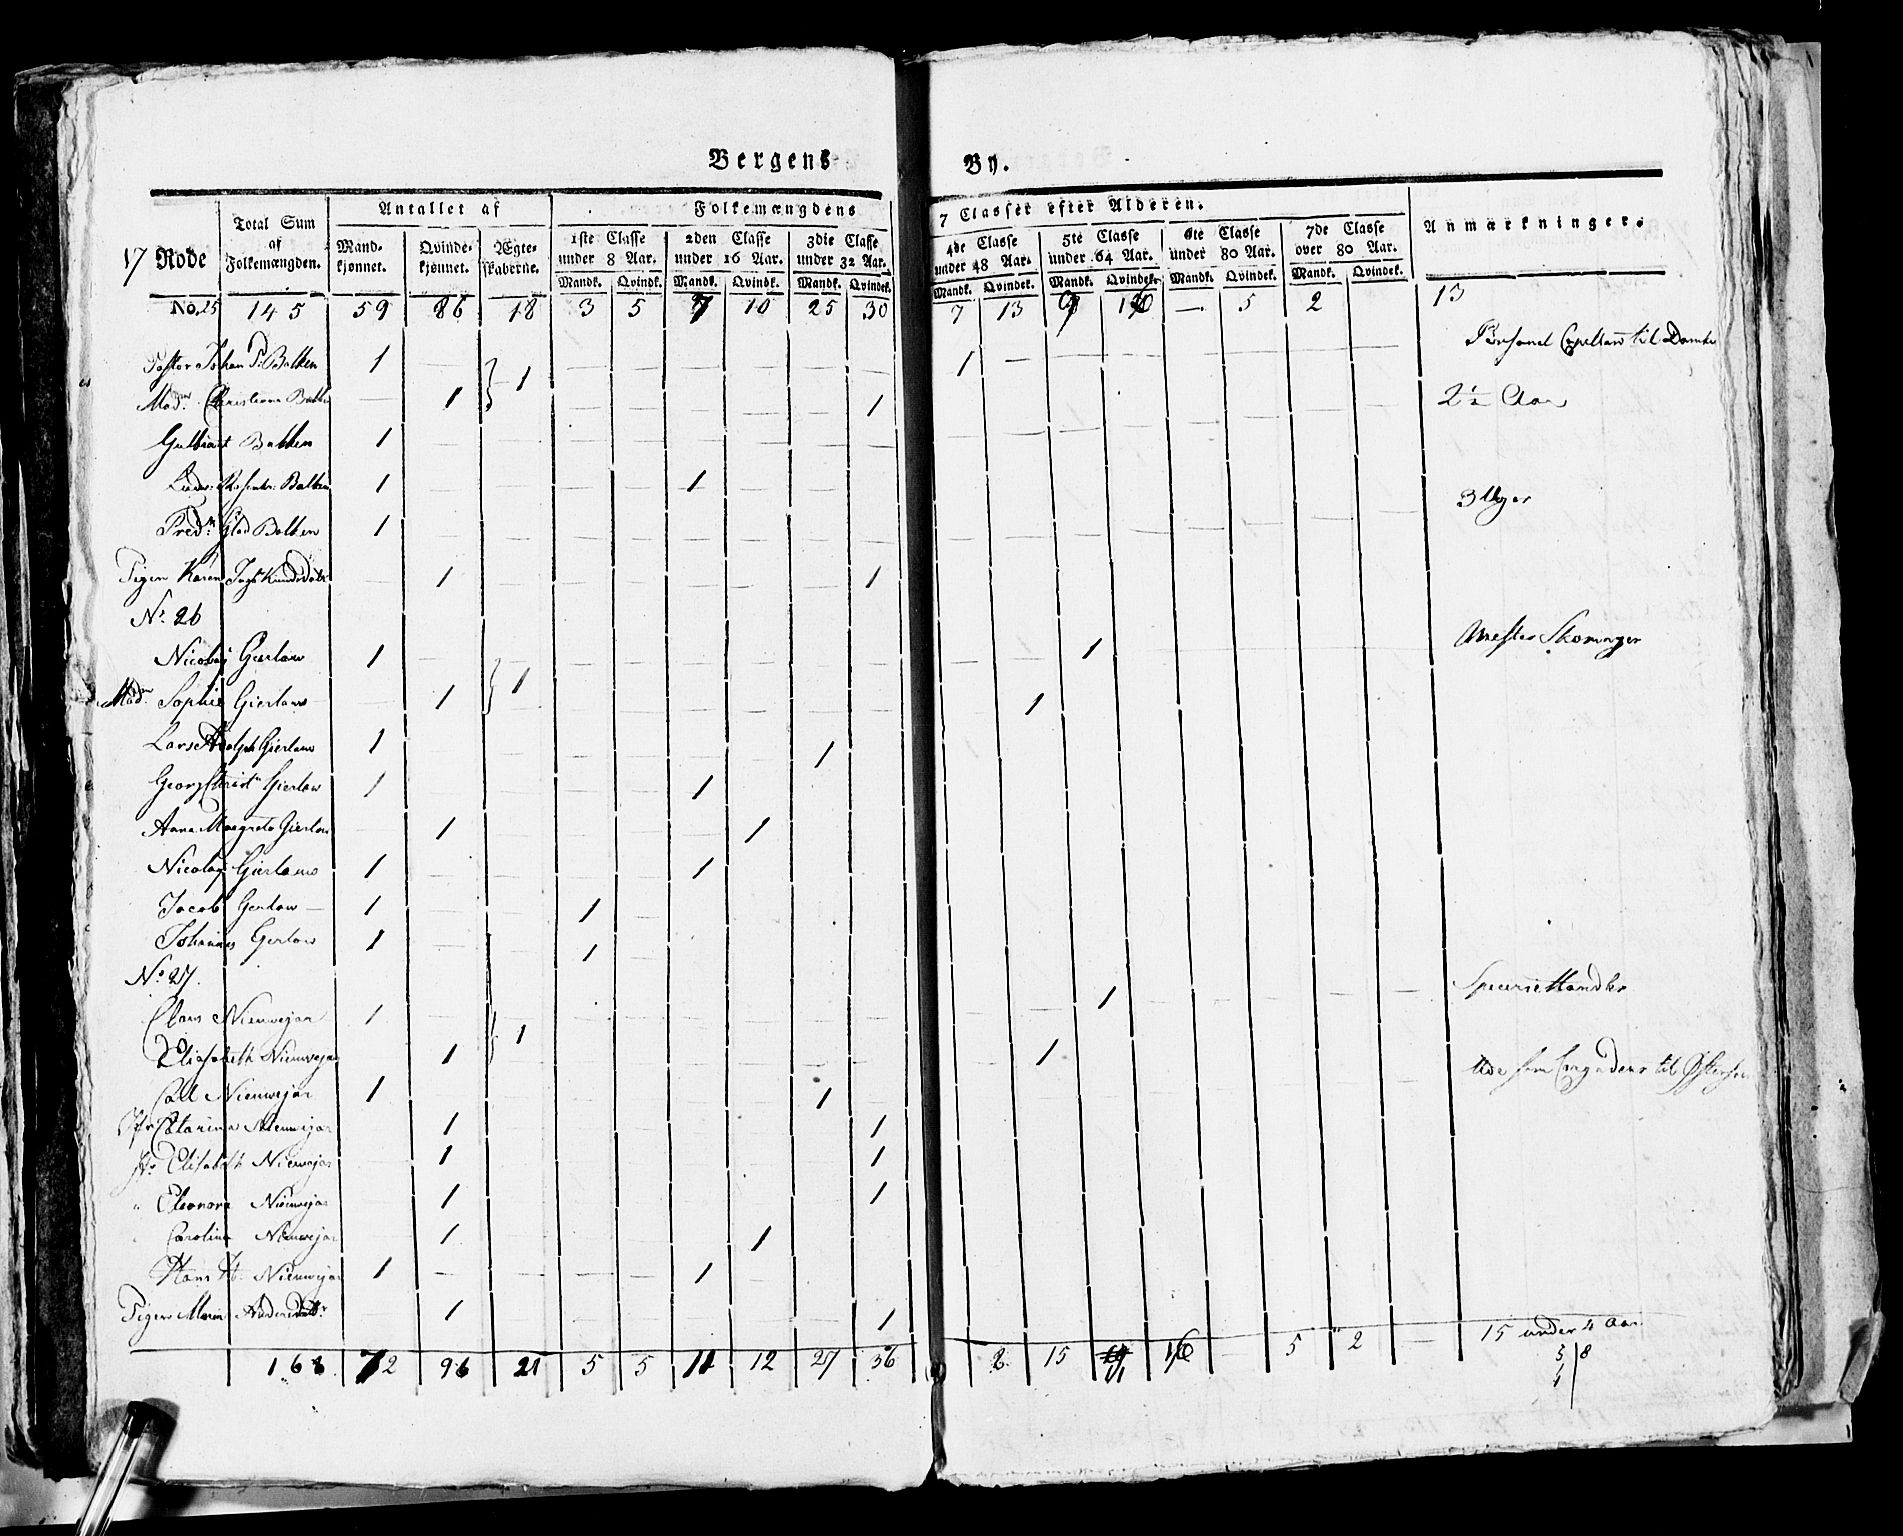 Bergens By.
17 Rode
Total Sum af Folkemængden.
Antallet af
Mand-kjønnet. Qvinde-kjønnet. Ægte-skaberne.
Folkemængdens 7 Classer efter Alderen.
1ste Classe under 8 Aar. 2den Classe under 16 Aar. 3die Classe under 32 Aar. 4de Classe under 48 Aar. 5te Classe under 64 Aar. 6te Classe under 80 Aar. 7de Classe over 80 Aar.
Anmærkninger.
Mandk. Qvindk. Mandk. Qvindk. Mandk. Qvindk. Mandk. Qvindek. Mandk. Qvindek. Mandk. Qvindek. Mandk. Qvindek.
No. 25 145 59 86 18 3 5 7 10 25 30 7 13 9 16 — 5 2 13
Pastor Johan P. Bakken 1 1 1 Personel Capellan til Domk
Mad. Christiana Bakk 1 1
Gulbrant Bakken 1 2½ Aar
Bakken 1 1
Fred. Glad Bakken 1 3 Uger
Pigen Karen Knudsdatr 1 1
No. 26
Nicolaj Gierlow 1 1 1 Mester Skomager
Mad. Sophie Gierlow 1 1
Lars Adolph Gierlow 1 1
Georg Christ. Gierlow 1 1
Anna Magreta Gierlow 1 1
Nicolaj Gierlow 1 1
Jacob Gerlow — 1 1
Johannes Gerlow 1 1
No. 27.
Claus Nieuwejar 1 1 1 Specerie Handler
Elisabeth Nieuwejar 1 1
Carl Nieuwejar 1 1
Jfr Catarina Nieuwejar 1 1
Jfr Elisabeth Nieuwejar 1 1
" Eleonora Nieuwejar 1 1
" Carolina Nieuwejar 1 1
Hans H. Nieuwejar 1 1
Pigen Maren Andersdattr 1 1
168 72 96 21 5 5 11 12 27 36 8 15 11 16 — 5 2 — 15 under 4 Aar